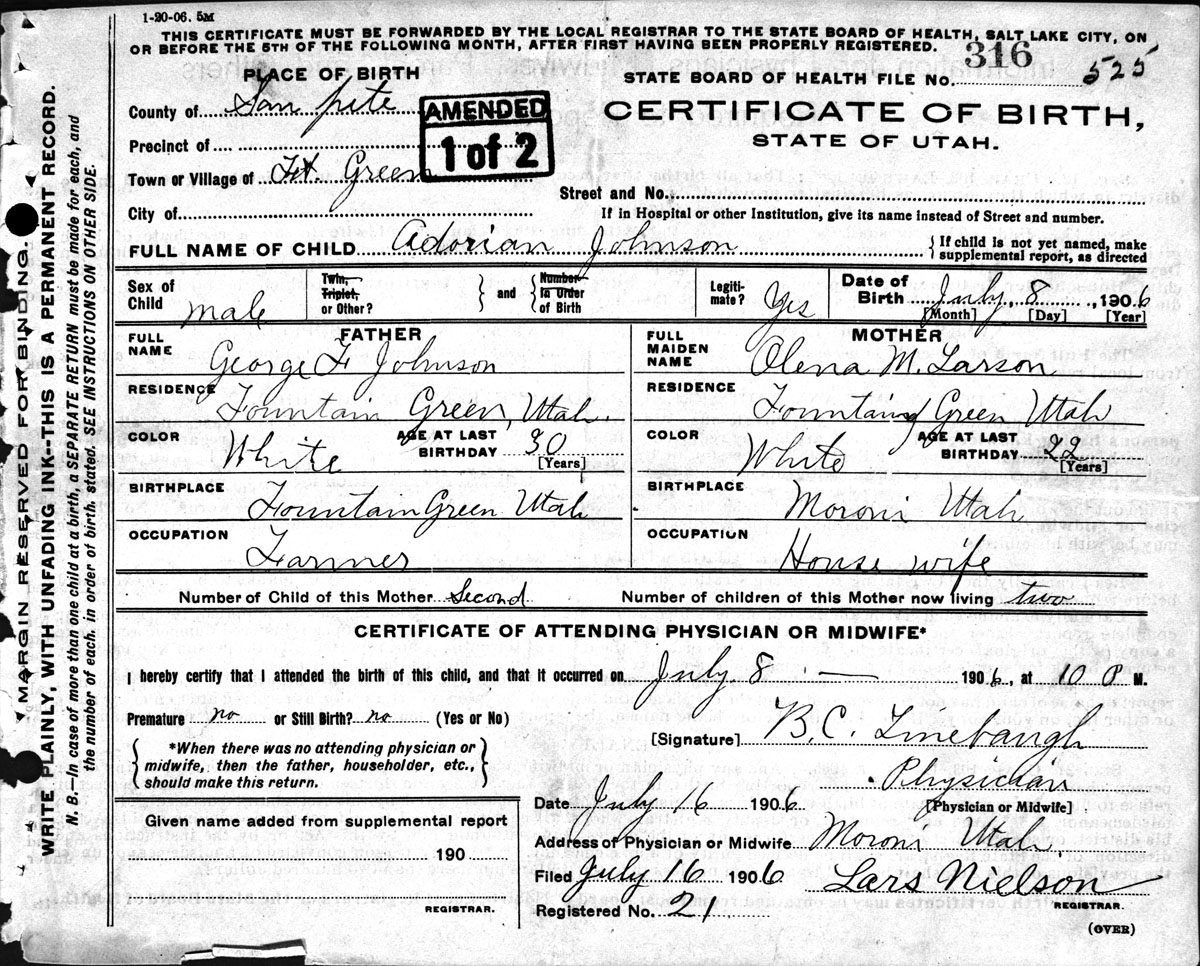 1-20-06. 5M
THIS CERTIFICATE MUST BE FORWARDED BY THE LOCAL REGISTRAR TO THE STATE BOARD OF HEALTH, SALT LAKE CITY, ON
OR BEFORE THE 5TH OF THE FOLLOWING MONTH, AFTER FIRST HAVING BEEN PROPERLY REGISTERED.
316
PLACE OF BIRTH
STATE BOARD OF HEALTH FILE No. 525
County of San pete
AMENDED
1 of 2
CERTIFICATE OF BIRTH,
STATE OF UTAH.
Precinct of
Town or Village of Ft. Green
Street and No.
City of
If in Hospital or other Institution, give its name instead of Street and number.
FULL NAME OF CHILD Adorian Johnson
{ If child is not yet named, make
supplemental report, as directed
Sex of Child male
Twin, Triplet, or Other? } and { Number in Order of Birth
Legiti-mate? Yes
Date of Birth July 8, 1906
[Month] [Day] [Year]
FATHER
FULL NAME George F Johnson
RESIDENCE Fountain Green, Utah.
COLOR White AGE AT LAST BIRTHDAY 30
[Years]
BIRTHPLACE Fountain Green Utah
OCCUPATION Farmer
MOTHER
FULL MAIDEN NAME Olena M. Larson
RESIDENCE Fountain Green Utah
COLOR White AGE AT LAST BIRTHDAY 22
[Years]
BIRTHPLACE Moroni Utah
OCCUPATION House wife
Number of Child of this Mother Second Number of children of this Mother now living two
CERTIFICATE OF ATTENDING PHYSICIAN OR MIDWIFE*
I hereby certify that I attended the birth of this child, and that it occurred on July 8 — 1906, at 10 P M.
Premature no or Still Birth? no (Yes or No)
[Signature] B. C. Linebaugh
{ *When there was no attending physician or
midwife, then the father, householder, etc.,
should make this return. }
Physician
[Physician or Midwife]
Date July 16 1906
Given name added from supplemental report
190
REGISTRAR.
Address of Physician or Midwife Moroni Utah.
Filed July 16 1906 Lars Nielson
REGISTRAR.
Registered No. 21
(OVER)
MARGIN RESERVED FOR BINDING.
WRITE PLAINLY, WITH UNFADING INK--THIS IS A PERMANENT RECORD.
N. B.—In case of more than one child at a birth, a SEPARATE RETURN must be made for each, and
the number of each, in order of birth, stated. SEE INSTRUCTIONS ON OTHER SIDE.